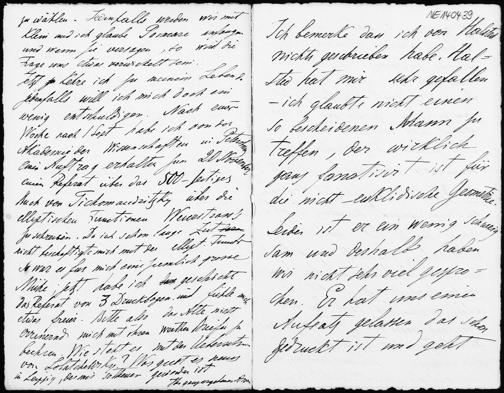 zu wählen. Jedenfalls werden wir mit
Klein und ich glaube Poincare anfangen
und wenn sie versagen, so wird die
Frage uns etwas erweitert sein.
Jetzt zu kehre ich zu meinem Leben.
Jedenfalls will ich mich doch ein
wenig entschuldigen. Nach einer
Woche nach habe ich von der
Akademie der Wissenschaften in
ein Auftrag erhalten zum 20 November
ein Referat über das 500-seitiges
Buch von über die
elliptischen Functionen Weierstrass
zu schreiben. Da ich schon lange Zeit
nicht beschäftigte mich mit der ellipt. Funct.
so war es für mich eine ziemlich grosse
Mühe; jetzt habe ich geschickt
das Referat von 3 Druckbogen und fühle mich
etwas freier. Bitte also das Alte nicht
mich mit ihren weiteren Briefen zu
beehren. Wie steht es mit der
von Lobatchewsky? Was giebt es neues
in Leipzig,
NE140439
Ich bemerke dass ich von Halsted
nichts geschrieben habe. Hal-
sted hat mir sehr gefallen
- ich glaubte nicht einen
so bescheidenen Mann zu
treffen, der wirklich
ganz fanatisirt ist für
die nicht-euklidische Geometrie.
Leider ist er ein wenig schweig
sam und deshalb haben
wir nicht sehr viel gespro-
chen. Er hat uns einen
Aufsatz gelassen das schon
gedruckt ist und geht